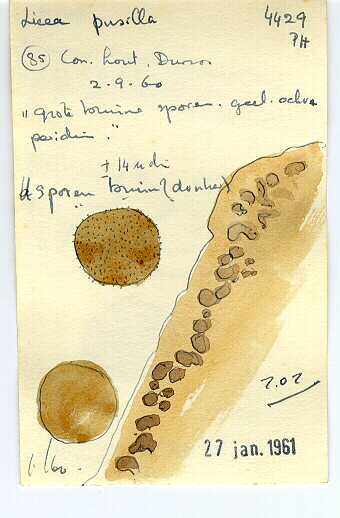 Licea pusilla
4429
PH
85 Con. hout,
2-9-60
"grote bruine sporen. geel. ochra
peridien."
± 14 u di
sporen bruin (donker)
1:160.
27 jan. 1961